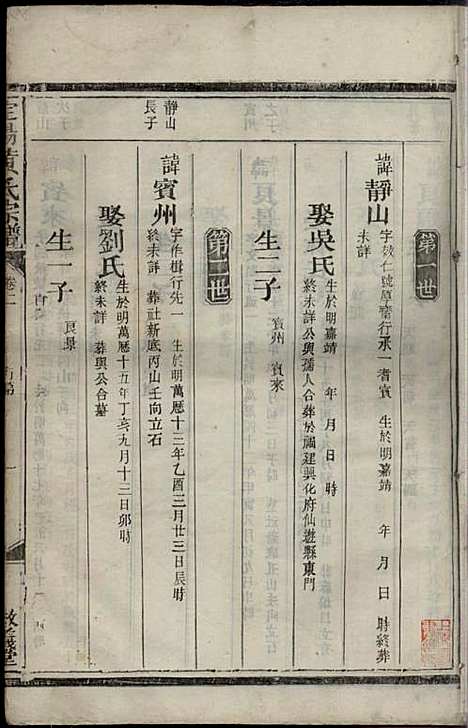 第一世
諱靜山 字 仁號 齋行承一耆賓 生於明嘉靖 年 月 日 時終葬
未詳
娶吳氏 生於明嘉靖 年 月 日 時
終未詳公與孺人合葬於福建興化府仙遊縣東門
生二子 賓州 賓來
第二世
靜山
長子
諱賓州 字作楫行先一 生於明萬曆十三年乙酉三月廿三日辰時
終未詳 葬社新底丙山壬向立石
娶劉氏 生於明萬曆十五年丁亥九月十三日卯時
終未詳 葬與公合墓
生一子 良璟
黃氏宗譜 卷二